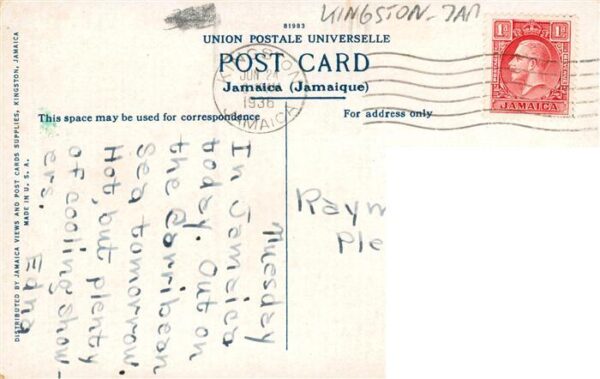 81983
KINGSTON - JAM
UNION POSTALE UNIVERSELLE
POST CARD
Jamaica (Jamaique)
KINGSTON
JUN 24
1936
JAMAICA
1D 1D
JAMAICA
This space may be used for correspondence
For address only
Tuesday
In Jamaica
today. Out on
the Carribean
Sea tomorrow.
Hot, but plenty
of cooling show-
ers.
Edna
Raym
Ple
DISTRIBUTED BY JAMAICA VIEWS AND POST CARDS SUPPLIES, KINGSTON, JAMAICA
MADE IN U. S. A.